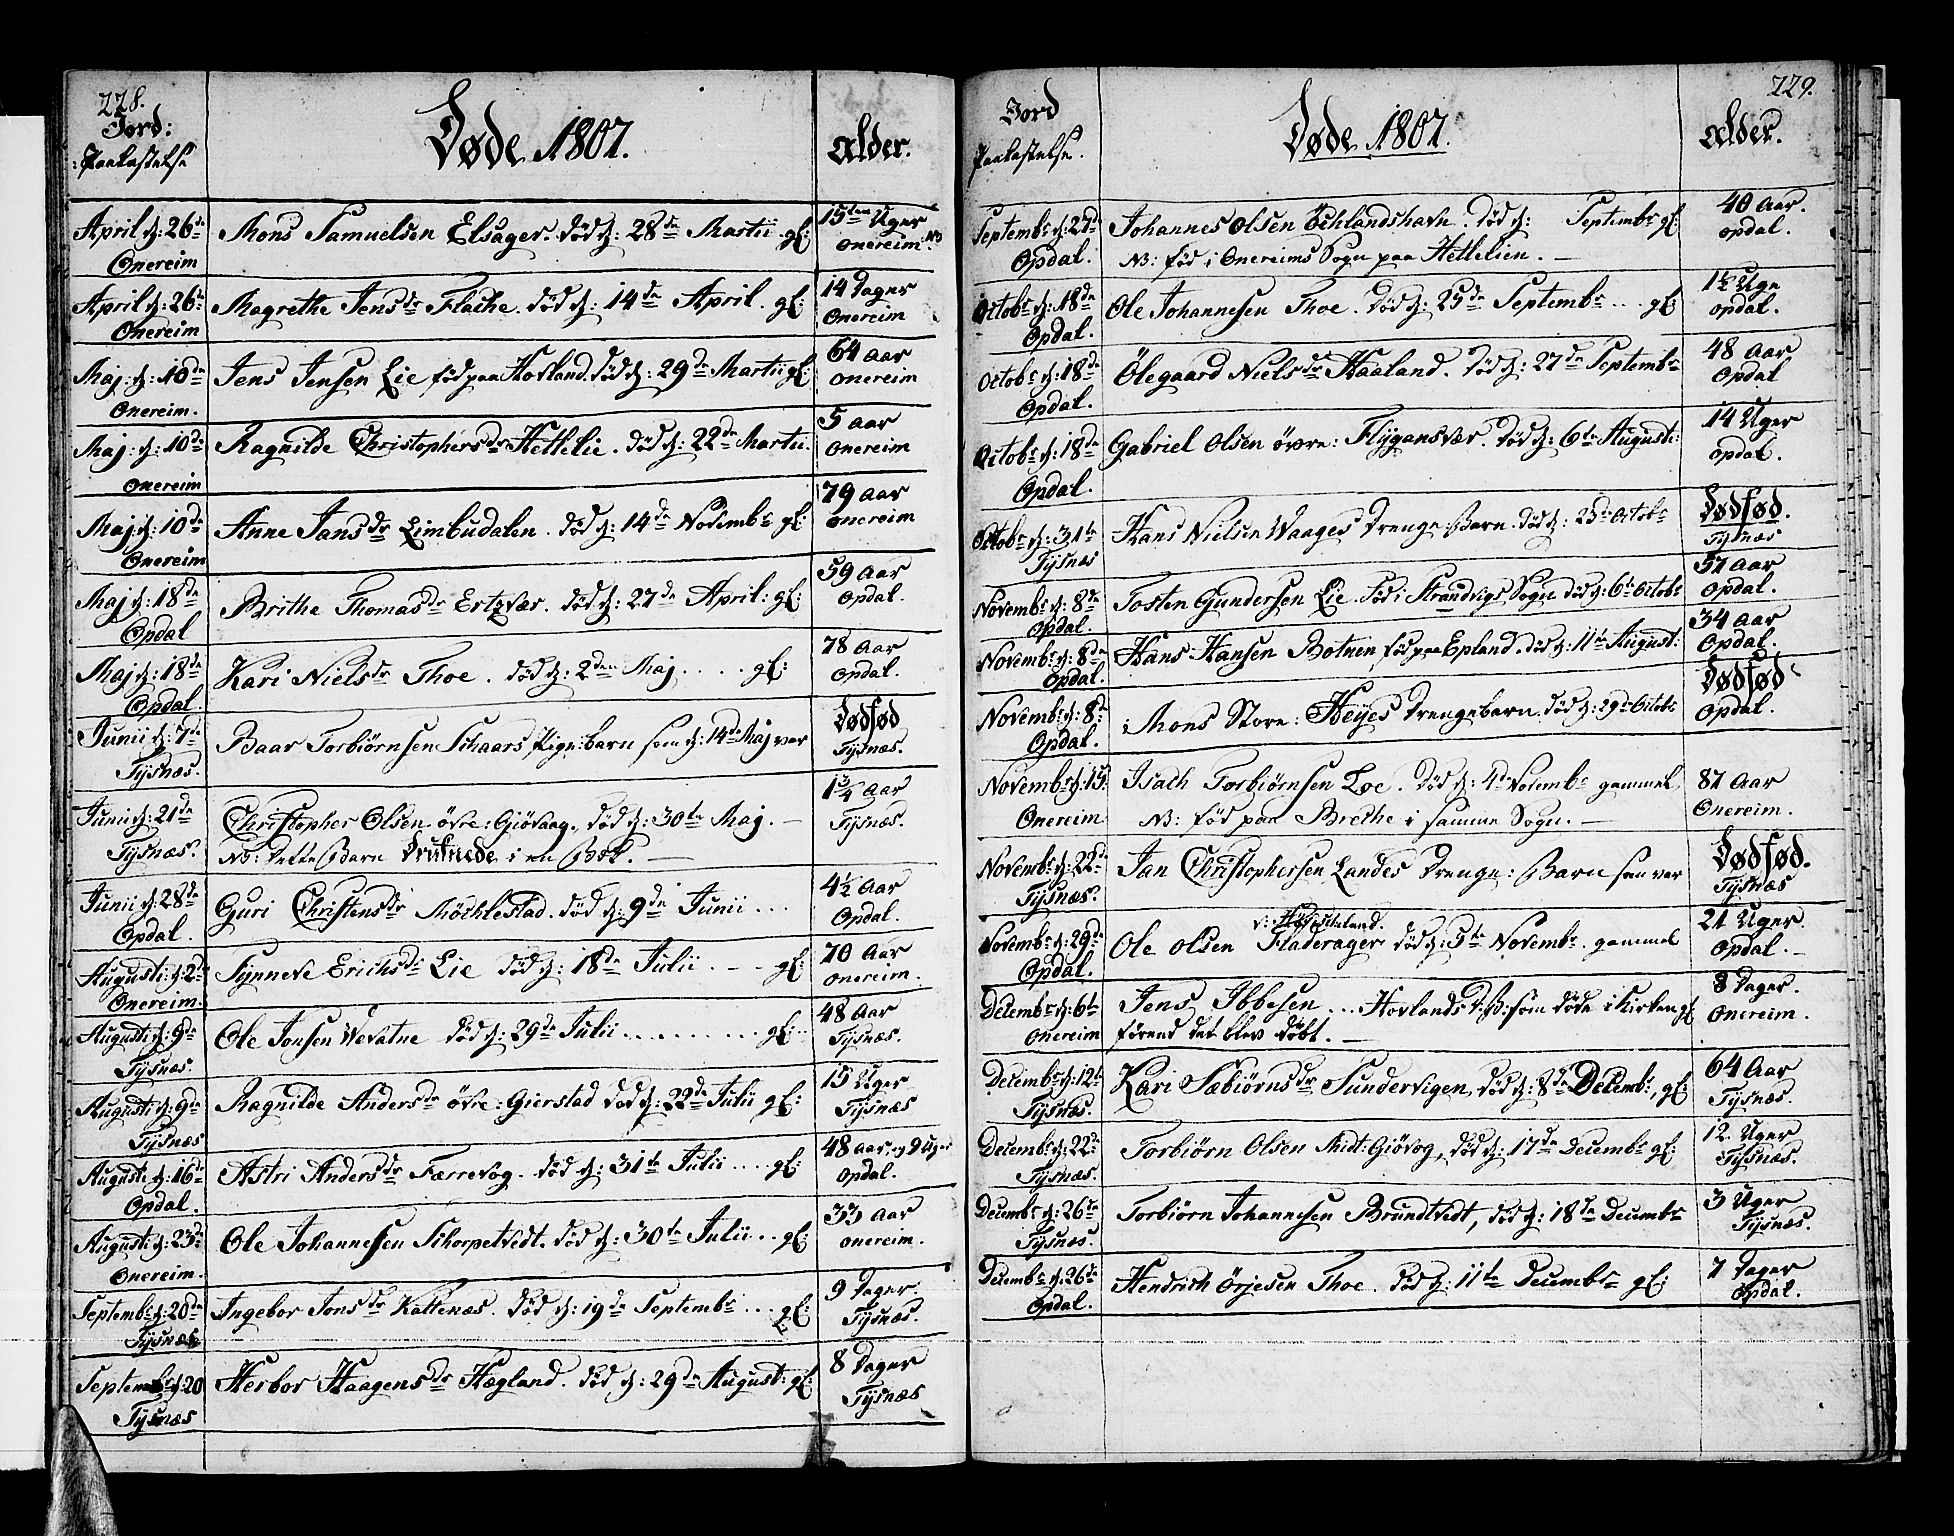 228.
Jord:
Paakastelse
Døde 1807.
Alder.
April d: 26de
Onereim
Mons Samuelsen Elsager. død d: 28de Martii gl:
15ten Uger
Onereim. NB
April d: 26de
Onereim
Magrethe Jensdr Flache. død d: 14de April. gl:
14 Dager
Onereim
Maj: d: 10de
Onereim.
Jens Jensen Lie fød paa Hovland. død d: 29de Martii gl:
64 Aar
Onereim
Maj: d: 10de
Onereim
Ragnilde Christophersdr Hettelie. død d: 22de Martii.
5 Aar
Onereim
Maj: d: 10de
Onereim
Anne Jansdr Limbudalen. død d: 14de Novembr gl:
79 Aar
Onereim
Maj d: 18de
Opdal
Brithe Thomasdr Ertzvær. død d: 27de April: gl:
59 Aar
Opdal.
Maj d: 18de
Opdal
Kari Nielsdr Thoe. død d: 2den Maj .... gl:
78 Aar
Opdal.
Junii d: 7de
Tysnæs.
Baar Torbiørnsen Schaars Pige: barn som d: 14de Maj var
Dødfød
Tysnæs.
Junii d: 21de
Tysnæs.
Christopher Olsen øvre: Giøvaag. død d: 30te Maj. —
NB: Dette Barn Druknede i en Bæk. —
1¾ Aar
Tysnæs.
Junii d: 28de
Opdal.
Guri Christensdr Møchlestad. død d: 9de Junii ...
4½ Aar
Opdal.
Augusti d: 2de
Onereim.
Synneve Erichsdr Lie død d: 18de Julii .... gl:
70 Aar
Onereim.
Augusti d: 9de
Tysnæs.
Ole Jonsen Wevatne død d: 29de Julii ........ gl:
48 Aar
Tysnæs.
Augusti d: 9de
Tysnæs
Ragnilde Andersdr øvre: Gierstad død d: 22de Julii gl:
15 Uger
Tysnæs
Augusti d: 16de
Opdal.
Astri Andersdr Færrevog. død d: 31te Julii .... gl:
48 Aar, og 9 Uger
Opdal.
Augusti d: 23de
Onereim.
Ole Johannesen Schorpetvedt. død d: 30te Julii .. gl:
33 Aar
Onereim.
Septembr d: 20de
Tysnæs
Ingebor Jonsdr Kattenæs. død d: 19de Septembr ... gl:
9 Dager.
Tysnæs.
Septembr d: 20
Tysnæs
Herbor Haagensdr Hægland. død d: 29de August: gl:
8 Dager
Tysnæs
229.
Jord
Paakastelse.
Døde 1807.
Alder.
Septembr d: 27de
Opdal.
Johannes Olsen Øchlandshavn. død d: Septembr gl
NB: fød i Onereims Sogn paa Hettelien. —
40 Aar.
Opdal.
Octobr d: 18de
Opdal.
Ole Johannesen Thoe. død d: 25de Septembr ... gl:
1½ Uge
Opdal.
Octobr d: 18de
Opdal.
Ølegaard Nielsdr Haaland. død d: 27de Septembr
48 Aar
Opdal
Octobr d: 18de
Opdal.
Gabriel Olsen øvre: Flygansvær. død d: 6te Augusti:
14 Uger
Opdal.
Octobr d: 31te
Tysnæs
Hans Nielsen Waages Drenge: Barn. død d: 25de Octobr
Dødfød.
Tysnæs
Novembr d: 8de
Opdal.
Tosten Gundersen Lie. fød i Strandvigs Sogn død d: 6te Octobr
57 Aar
Opdal.
Novembr d: 8de
Opdal.
Hans Hansen Botnen, fød paa Epland. død d: 11te August:
34 Aar
Opdal.
Novembr d: 8de
Opdal.
Mons Store: Heyes Drengebarn. død d: 29de Octobr
Dødfød
Opdal.
Novembr d: 15.
Onereim.
Isach Torbiørnsen Loe. død d: 4de Novembr gammel
NB: fød paa Brethe i samme Sogn. —
87 Aar
Onereim.
Novembr d: 22de
Tysnæs.
Jan Christophersen Landes Drenge: Barn som var
Dødfød.
Tysnæs
Novembr d: 29de
Opdal.
Ole Olsen Fladerager død d: 5te Novembr. gammel
21 Uger.
Opdal. —
Decembr d: 6te
Onereim
Jens Ibbesen ... Hovlands D: B: som døde i Kirken gl
førend det blev døbt. —
8 Dager.
Onereim.
Decembr d: 12te
Tysnæs.
Kari Sæbiørnsdr Sundervigen, død d: 8de Decembr, gl:
64 Aar
Tysnæs.
Decembr d: 22de
Tysnæs.
Torbiørn Olsen Midt: Giøvog, død d: 17de Decembr gl:
12. Uger
Tysnæs.
Decembr d: 26de
Tysnæs.
Torbiørn Johannesen Brundtvedt, død d: 18de Decembr
3 Uger
Tysnæs.
Decembr d: 26de
Opdal.
Hendrich Ørjesen Thoe. død d: 11te Decembr gl:
7 Dager
Opdal.